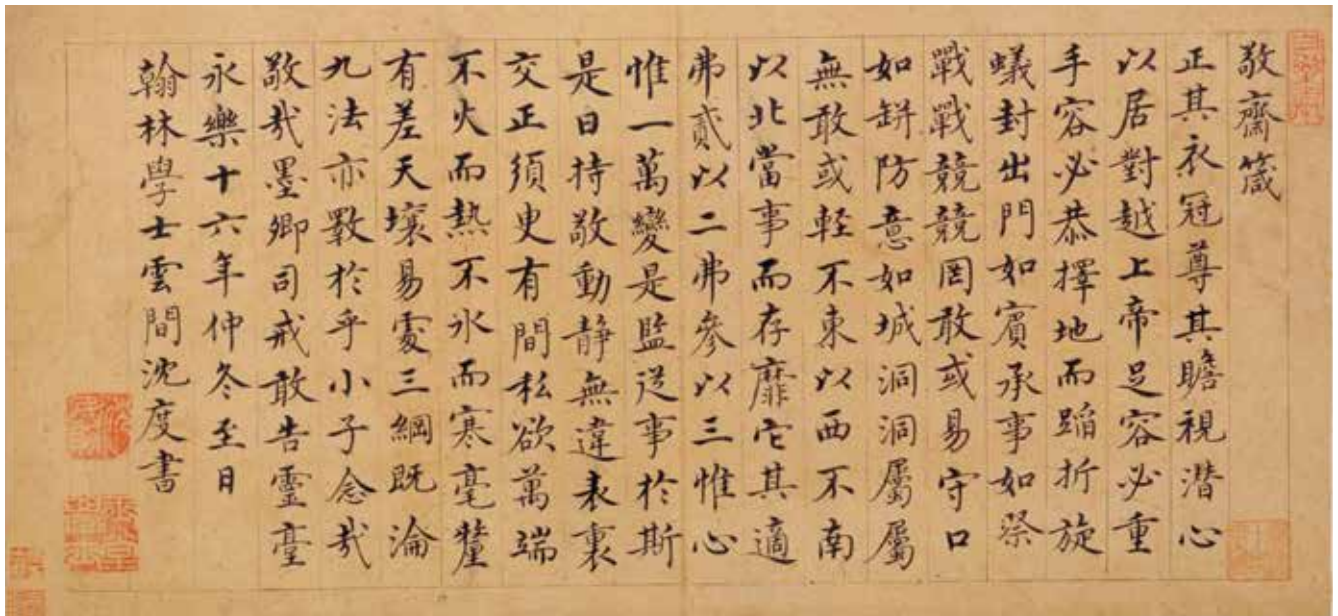 敬齋箴
正其衣冠尊其瞻視潛心
以居對越上帝足容必重
手容必恭擇地而蹈折旋
蟻封出門如賓承事如祭
戰戰競競罔敢或易守口
如缾防意如城洞洞屬屬
無敢或軽不東以西不南
以北當事而存靡它其適
弗貳以二弗參以三惟心
惟一萬變是監从事於斯
是曰持敬動静無違表裏
交正須臾有間私欲萬端
不火而熱不氷而寒毫釐
有差天壤易處三綱既淪
九法亦斁於乎小子念㢤
敬㢤墨卿司戒敢告靈臺
永樂十六年仲冬至日
翰林學士雲間沈度書